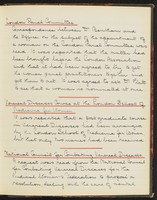 London Panel Committee.
Correspondence between Dr.
& Clapham on the subject of the appointment of
a woman on the London Panel Committee was
read. It was reported that the matter had
been brought before the London Association
and that it had been agreed to try to get
the woman panel practitioners together and
get them to it. It was agreed to ask Dr.
to see that a woman is nominated if nec.
Venereal Diseases Course at the London School of
Medicine for Women.
It was reported that a post-graduate course
in Venereal Diseases had been arranged
by the London School of Medicine for Women
but that only two names had been received.
National Council for Combating Venereal Diseases.
Request was read from the National Council
for Combating Venereal Diseases for the
Medical Women's Federation to propose a
resolution dealing with the cases of mental